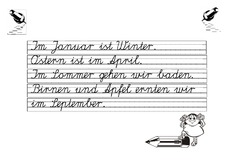 Im Januar ist Winter.
Ostern ist im April.
Im Sommer gehen wir baden.
Birnen und Äpfel ernten wir
im September.